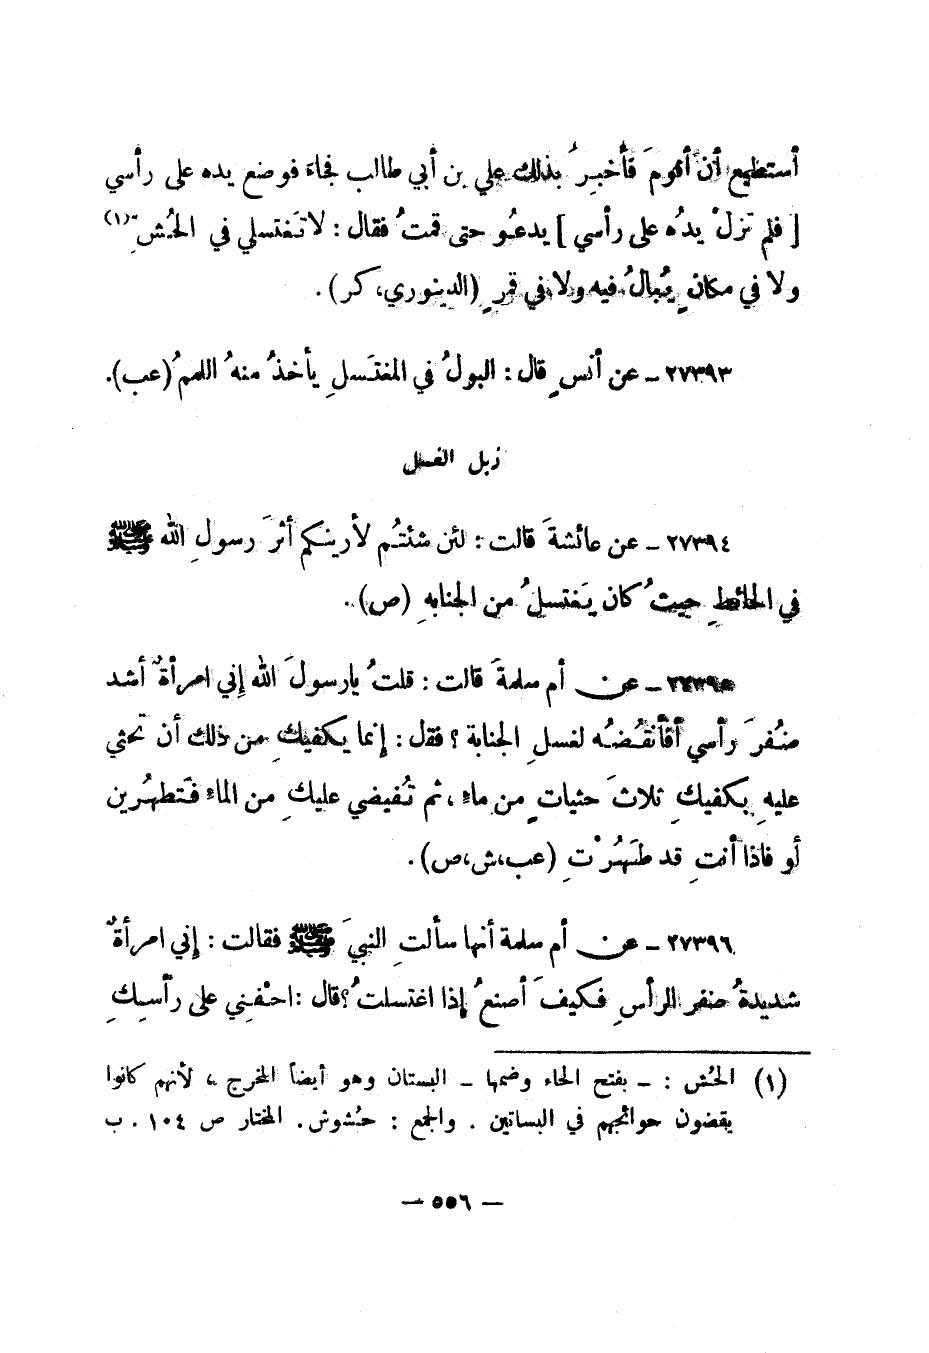 أستطيع أن أقومَ فأخبِرُ بذلك علي بن أبي طالب فجاءَ فوضع يده على رأسي
[ فلم تزلْ يدُه على رأسي ] يدعُو حتى قمتُ فقال : لا تَغتسلي في الحُشِ (١)
ولا في مكانٍ يُبالُ فيه ولا في قمرٍ (الدينوري، كر) .
٢٧٣٩٣ – عن أنسٍ قال : البولُ في المغتَسلِ يأخذُ منهُ اللممُ (عب).
ذبل الغسل
٢٧٣٩٤ – عن عائشةَ قالت : لئن شئتُم لأرينكم أثرَ رسولِ الله ﷺ
في الحائطِ حيثُ كان يَغتسلُ من الجنابهِ (ص) .
٢٧٣٩٥ – عن أم سلمةَ قالت : قلتُ يا رسولَ الله إني امرأةٌ أشد
ضُفرَ رأسي أفأنقُضُه لغسلِ الجنابة ؟ فقل : إنما يكفيكِ من ذلك أن تحثي
عليهِ بكفيكِ ثلاثَ حثياتٍ من ماءِ ، ثم تُفيضي عليكِ من الماءِ فتَطهُرين
أو فاذا أنتِ قد طَهُرْتِ (عب،ش،ص) .
٢٧٣٩٦ – عن أم سلمة أنها سألتِ النبيَ ﷺ فقالت : إني امرأةٌ
شديدةُ ضفر الرأسِ فكيفَ أصنعُ إذا اغتسلتُ؟ قال : احْفِني على رأسِكِ
(١) الحُش : – بفتح الحاء وضمها – البستان وهو أيضاً المخرج ، لأنهم كانوا
يقضون حوائجهم في البساتين . والجمع : حُشوش. المختار ص ١٠٤ . ب
– ٥٥٦ –